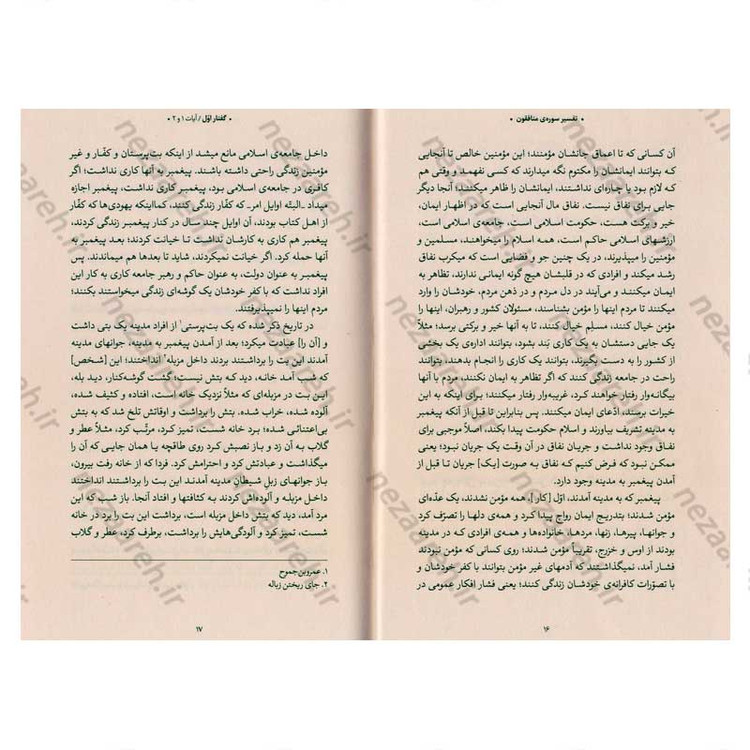 • تفسیر سوره‌ی منافقون •
آن کسانی که تا اعماق جانشان مؤمنند؛ این مؤمنین خالص تا آنجایی
که بتوانند ایمانشان را مکتوم نگه میدارند که کسی نفهمد و وقتی هم
که لازم بود یا چاره‌ای نداشتند، ایمانشان را ظاهر میکنند؛ آنجا دیگر
جایی برای نفاق نیست. نفاق مال آنجایی است که در اظهار ایمان،
خیر و برکت هست، حکومت اسلامی است، جامعه‌ی اسلامی است،
ارزشهای اسلامی حاکم است، همه اسلام را میخواهند، مسلمین و
مؤمنین را میپذیرند، در یک چنین جو و فضایی است که میکرب نفاق
رشد میکند و افرادی که در قلبشان هیچ گونه ایمانی ندارند، تظاهر به
ایمان میکنند و می‌آیند در دل مردم و در ذهن مردم، خودشان را وارد
میکنند تا مردم اینها را مؤمن بشناسند، مسئولان کشور و رهبران، اینها را
مؤمن خیال کنند، مسلم خیال کنند، تا به آنها خیر و برکتی برسد؛ مثلاً
یک جایی دستشان به یک کاری بَند بشود، بتوانند اداره‌ی یک بخشی
از کشور را به دست بگیرند، بتوانند یک کاری را انجام بدهند، بتوانند
راحت در جامعه زندگی کنند که اگر تظاهر به ایمان نکنند، مردم با آنها
بیگانه‌وار رفتار خواهند کرد، غریبه‌وار رفتار میکنند؛ برای اینکه به این
خیرات برسند، ادّعای ایمان میکنند. پس بنابراین تا قبل از آنکه پیغمبر
به مدینه تشریف بیاورند و اسلام حکومت پیدا بکند، اصلاً موجبی برای
نفاق وجود نداشت و جریان نفاق در آن وقت یک جریان نبود؛ یعنی
ممکن نبود که فرض کنیم که نفاق به صورت [یک] جریان تا قبل از
آمدن پیغمبر به مدینه وجود داشت.
پیغمبر که به مدینه آمدند، اوّل [کار]، همه مؤمن نشدند، یک عدّه‌ای
مؤمن شدند؛ بتدریج ایمان رواج پیدا کرد و همه‌ی دلها را تصرّف کرد
و جوانها، پیرها، زنها، مردها، خانواده‌ها و همه‌ی افرادی که در مدینه
بودند از اوس و خزرج، تقریباً مؤمن شدند؛ روی کسانی که مؤمن نبودند
فشار آمد، نمیگذاشتند که آدمهای غیر مؤمن بتوانند با کفر خودشان و
با تصوّرات کافرانه‌ی خودشان زندگی کنند؛ یعنی فشار افکار عمومی در
۱۶
• گفتار اوّل / آیات ۱ و ۲ •
داخل جامعه‌ی اسلامی مانع میشد از اینکه بت‌پرستان و کفّار و غیر
مؤمنین زندگی راحتی داشته باشند. پیغمبر به آنها کاری نداشت؛ اگر
کافری در جامعه‌ی اسلامی بود، پیغمبر کاری نداشت، پیغمبر اجازه
میداد ـ البتّه اوایل امر ـ که کفّار زندگی کنند، کمااینکه یهودی‌ها که کفّار
از اهل کتاب بودند، آن اوایل چند سال در کنار پیغمبر زندگی کردند،
پیغمبر هم کاری به کارشان نداشت تا خیانت کردند؛ بعد پیغمبر به
آنها حمله کرد. اگر خیانت نمیکردند، شاید تا بعدها هم میماندند. پس
پیغمبر به عنوان دولت، به عنوان حاکم و رهبر جامعه کاری به کار این
افراد نداشت که با کفر خودشان یک گوشه‌ای زندگی میخواستند بکنند؛
مردم اینها را نمیپذیرفتند.
در تاریخ ذکر شده که یک بت‌پرستی۱ از افراد مدینه یک بتی داشت
و [آن را] عبادت میکرد؛ بعد از آمدن پیغمبر به مدینه، جوانهای مدینه
آمدند این بت را برداشتند بردند داخل مزبله۲ انداختند؛ این [شخص]
که شب آمد خانه، دید که بتش نیست؛ گشت گوشه‌کنار، دید بله،
این بت در مزبله‌ای که مثلاً نزدیک خانه است، افتاده و کثیف شده،
آلوده شده، خراب شده. بتش را برداشت و اوقاتش تلخ شد که به بتش
بی‌اعتنائی شده؛ برد خانه شست، تمیز کرد، مرتّب کرد، مثلاً عطر و
گلاب به آن زد و باز نصبش کرد روی طاقچه یا همان جایی که آن را
میگذاشت و عبادتش کرد و احترامش کرد. فردا که از خانه رفت بیرون،
باز جوانهای زبل شیطان مدینه آمدند این بت را برداشتند انداختند
داخل مزبله و آلوده‌اش کردند به کثافتها و افتاد آنجا. باز شب که این
مرد آمد، دید که بتش داخل مزبله است، برداشت این بت را برد در خانه
شست، تمیز کرد و آلودگی‌هایش را برداشت، برطرف کرد، عطر و گلاب
۱. عمروبن‌جموح
۲. جای ریختن زباله
۱۷
nezaareh.ir